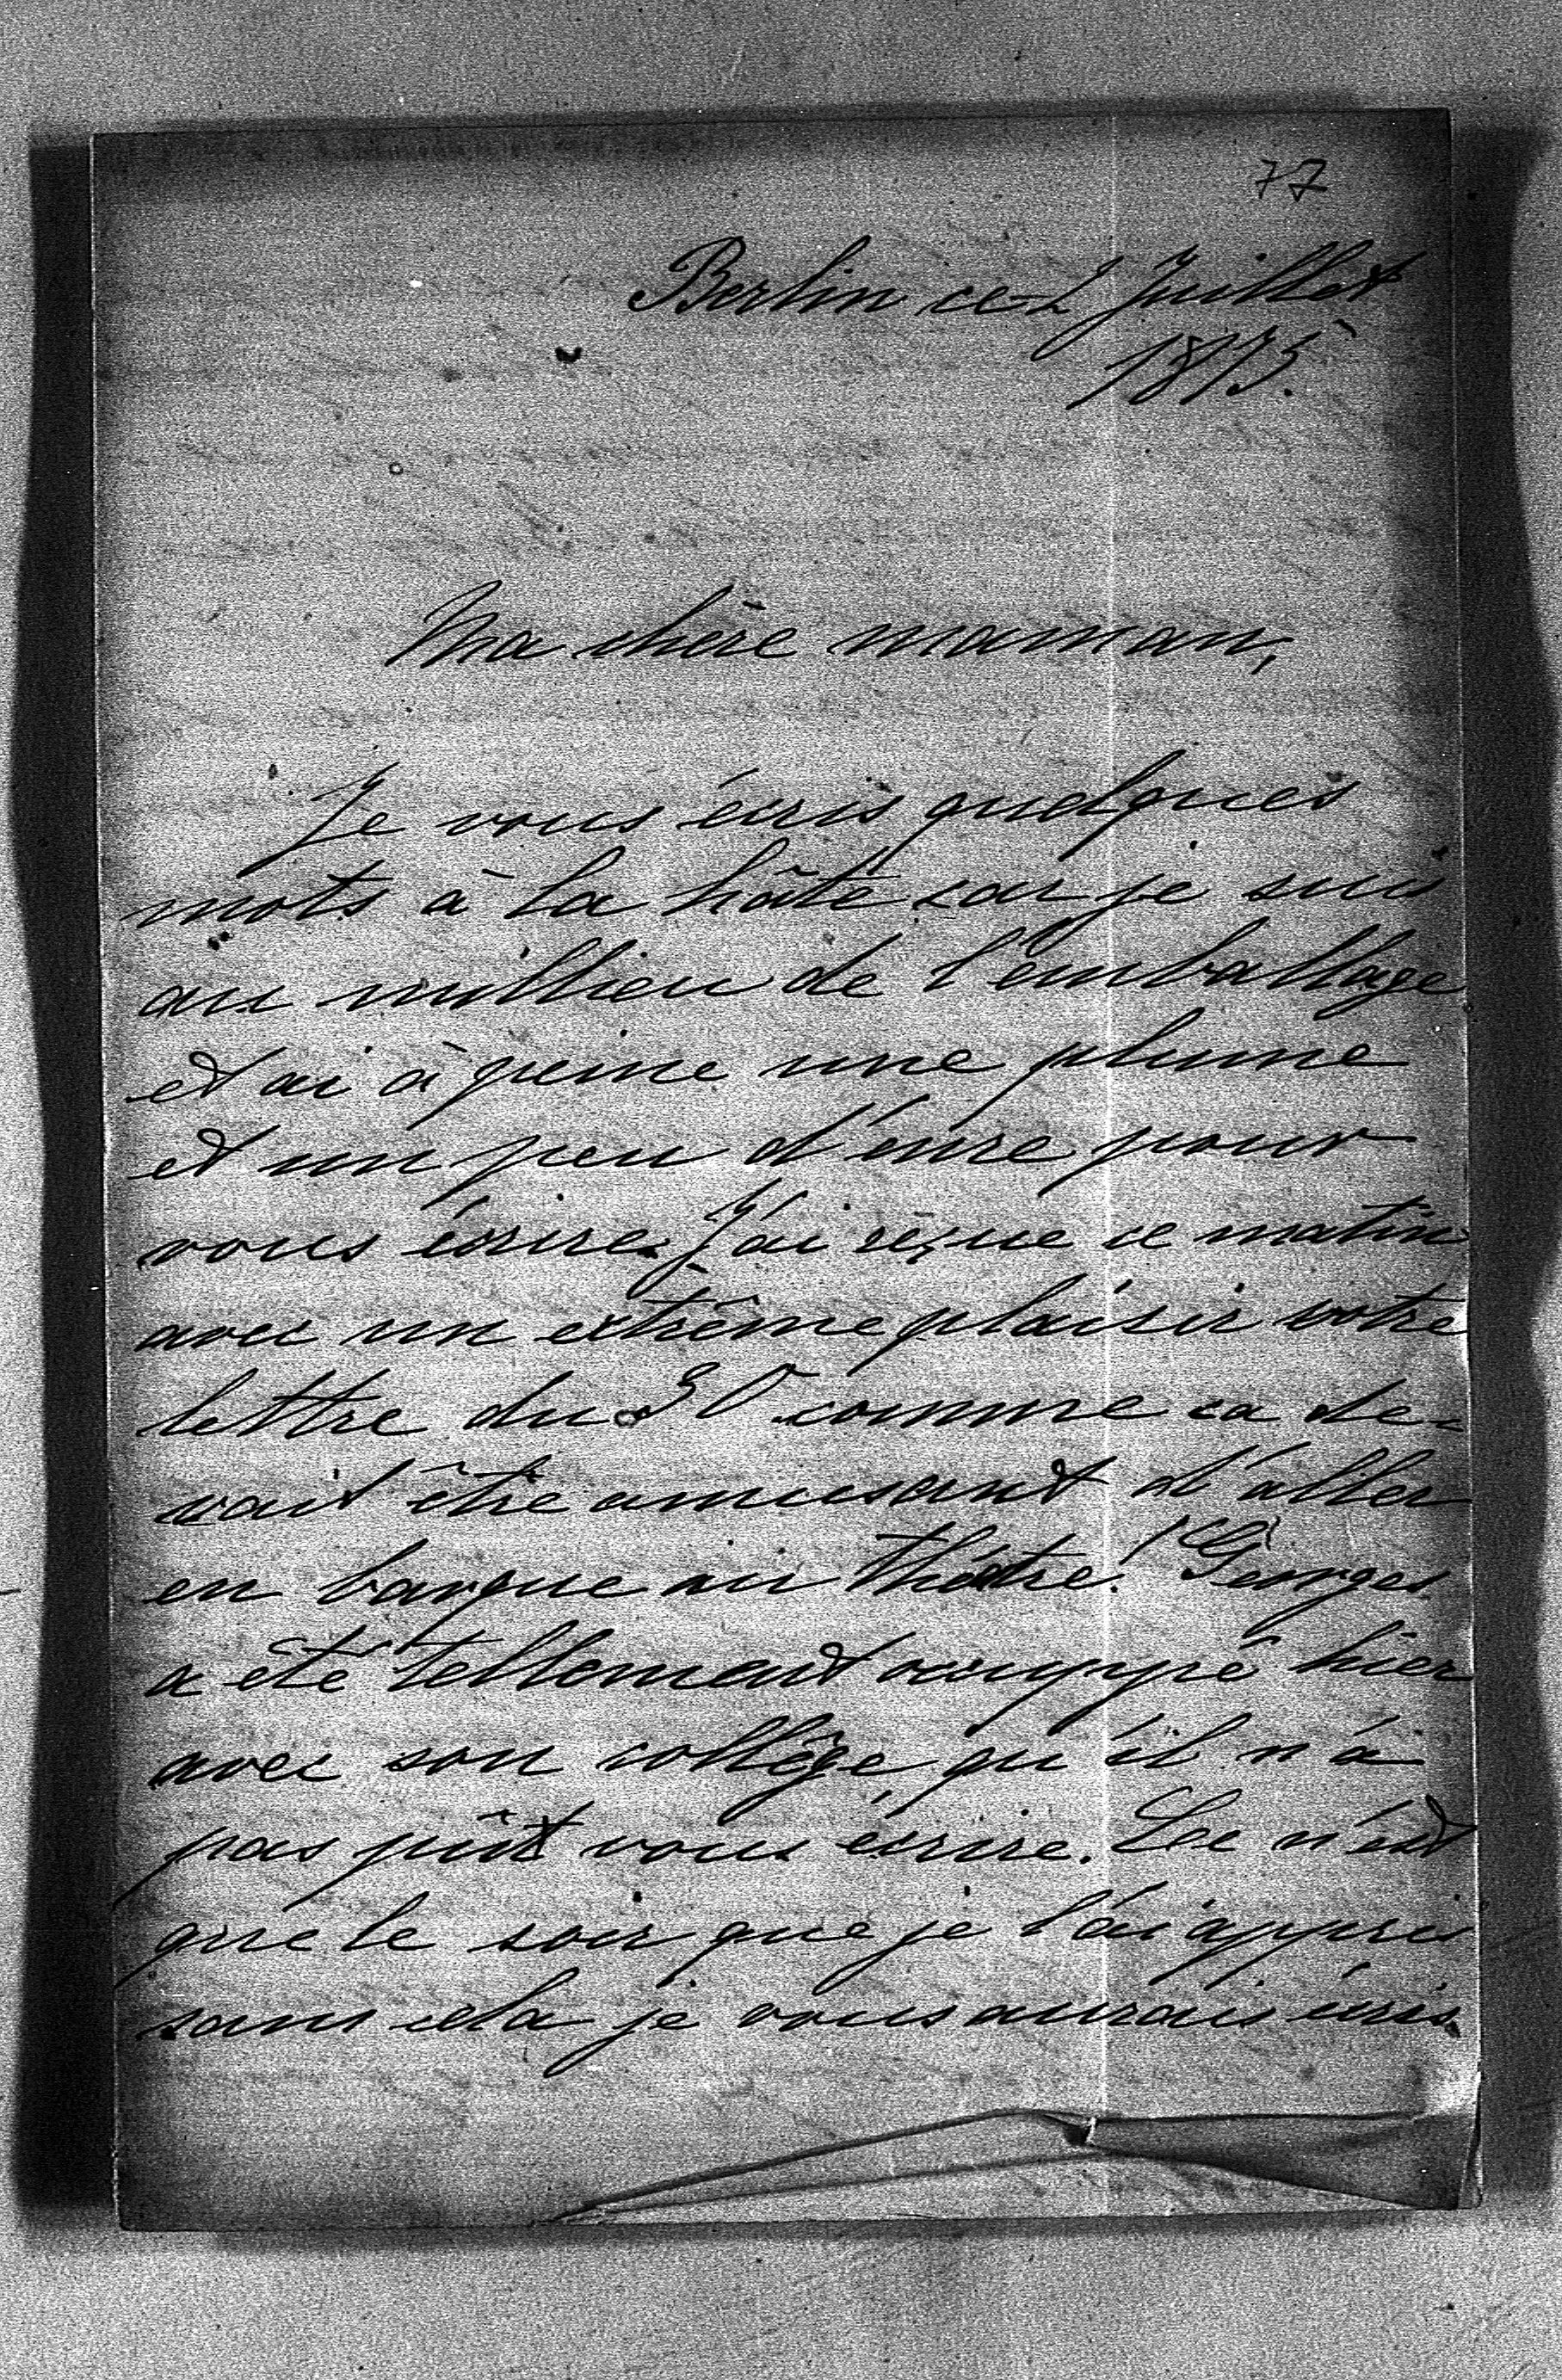 77
Berlin ce 2 Juillet
1875.
Ma chère maman,
Je vous écris quelques
mots à la hâte car je suis
au millieu de l'emballage
et ai à peine une plume
et un peu d'encre pour
vous écrire. J'ai reçue ce matin
avec un extrême plaisir votre
lettre du 30 comme ca de-
vait être amusant d'aller
en barque au théâtre! Georges
a été tellement occuppé hier
avec son collège, qu'il n'a
pas pût vous écrire. Ce n'est
que le soir que je l'ai appris
sans cela je vous aurais écris.